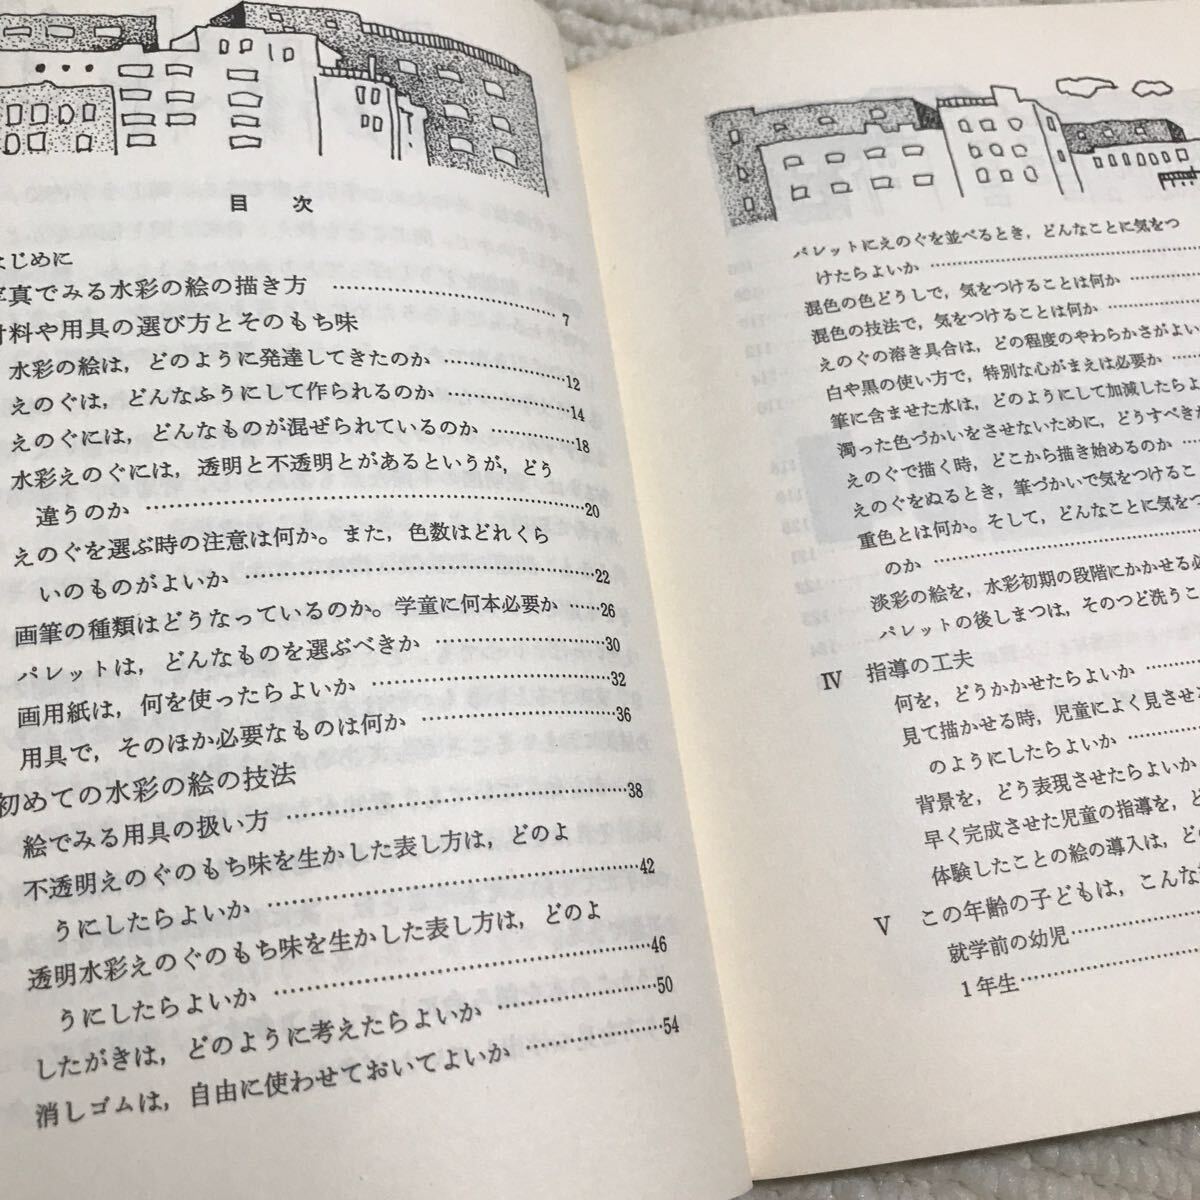 目　次
はじめに
写真でみる水彩の絵の描き方 ……………………7
材料や用具の選び方とそのもち味
水彩の絵は，どのように発達してきたのか ……………12
えのぐは，どんなふうにして作られるのか ……………14
えのぐには，どんなものが混ぜられているのか ………18
水彩えのぐには，透明と不透明とがあるというが，どう
違うのか ……………………………………………20
えのぐを選ぶ時の注意は何か。また，色数はどれくら
いのものがよいか ……………………………………22
画筆の種類はどうなっているのか。学童に何本必要か ……26
パレットは，どんなものを選ぶべきか ………………30
画用紙は，何を使ったらよいか ………………………32
用具で，そのほか必要なものは何か …………………36
初めての水彩の絵の技法
絵でみる用具の扱い方 ………………………………38
不透明えのぐのもち味を生かした表し方は，どのよ
うにしたらよいか ……………………………………42
透明水彩えのぐのもち味を生かした表し方は，どのよ
うにしたらよいか ……………………………………46
したがきは，どのように考えたらよいか ……………50
消しゴムは，自由に使わせておいてよいか …………54
パレットにえのぐを並べるとき，どんなことに気をつ
けたらよいか ……………………………
混色の色どうしで，気をつけることは何か …………
混色の技法で，気をつけることは何か ………………
えのぐの溶き具合は，どの程度のやわらかさがよい
白や黒の使い方で，特別な心がまえは必要か …………
筆に含ませた水は，どのようにして加減したらよ
濁った色づかいをさせないために，どうすべきか
えのぐで描く時，どこから描き始めるのか ……
えのぐをぬるとき，筆づかいで気をつけるこ
重色とは何か。そして，どんなことに気をつ
のか ……………………………
淡彩の絵を，水彩初期の段階にかかせる必
パレットの後しまつは，そのつど洗うこ
Ⅳ　指導の工夫
何を，どうかかせたらよいか …………
見て描かせる時，児童によく見させ
のようにしたらよいか ……………
背景を，どう表現させたらよいか
早く完成させた児童の指導を，ど
体験したことの絵の導入は，ど
Ⅴ　この年齢の子どもは，こんな
就学前の幼児 ……………
1年生 ……………